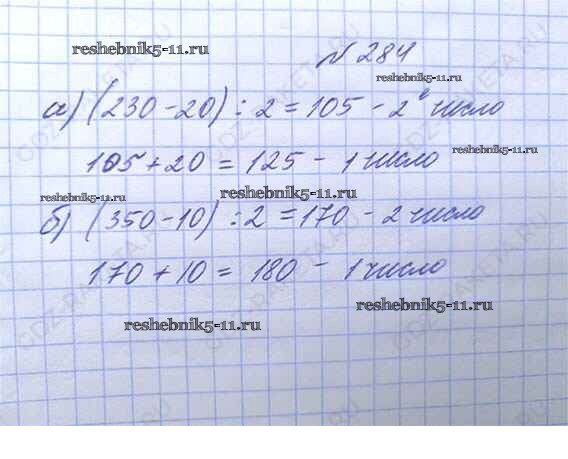 reshebnik5-11.ru
№ 284
reshebnik5-11.ru
а) (230 - 20) : 2 = 105 - 2е число
105 + 20 = 125 - 1 число
reshebnik5-11.ru
reshebnik5-11.ru
reshebnik5-11.ru
б) (350 - 10) : 2 = 170 - 2 число
170 + 10 = 180 - 1 число
reshebnik5-11.ru
reshebnik5-11.ru
GDZ-RAKETA.RU